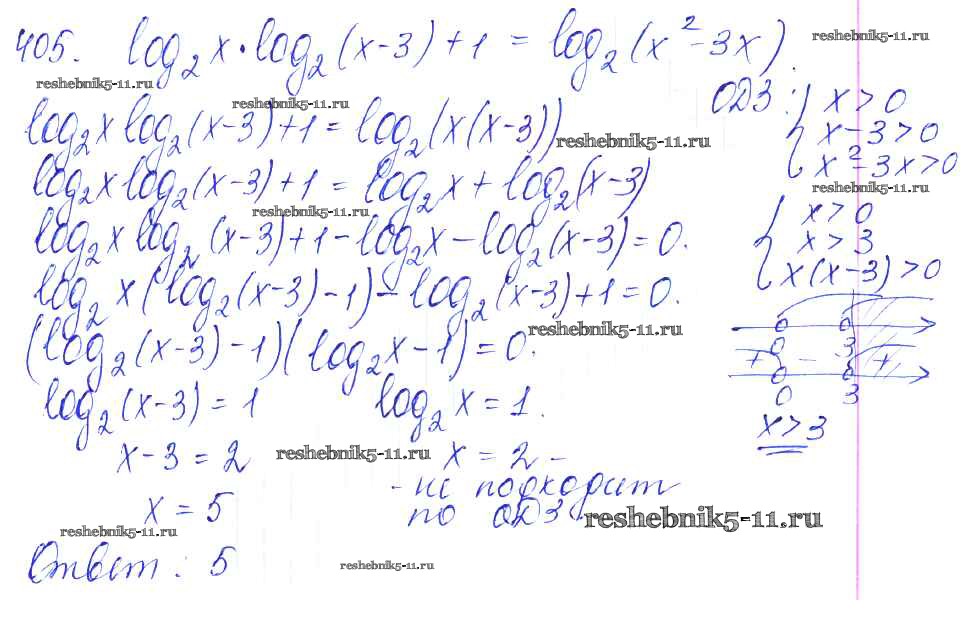 405. log₂x·log₂(x-3)+1 = log₂(x²-3x).
reshebnik5-11.ru
reshebnik5-11.ru
reshebnik5-11.ru
ОДЗ: { x>0
log₂x log₂(x-3)+1 = log₂(x(x-3))
reshebnik5-11.ru
x-3>0
x²-3x>0
log₂x log₂(x-3)+1 = log₂x + log₂(x-3)
reshebnik5-11.ru
reshebnik5-11.ru
{ x>0
log₂x log₂(x-3)+1-log₂x-log₂(x-3)=0.
x>3
x(x-3)>0
log₂x(log₂(x-3)-1)-log₂(x-3)+1=0.
reshebnik5-11.ru
0 3
(log₂(x-3)-1)(log₂x-1)=0.
+ - +
0 3
log₂(x-3)=1 log₂x=1.
x>3
x-3=2 reshebnik5-11.ru x=2 -
- не подходит
x=5 по ОДЗ
reshebnik5-11.ru
reshebnik5-11.ru
Ответ: 5
reshebnik5-11.ru